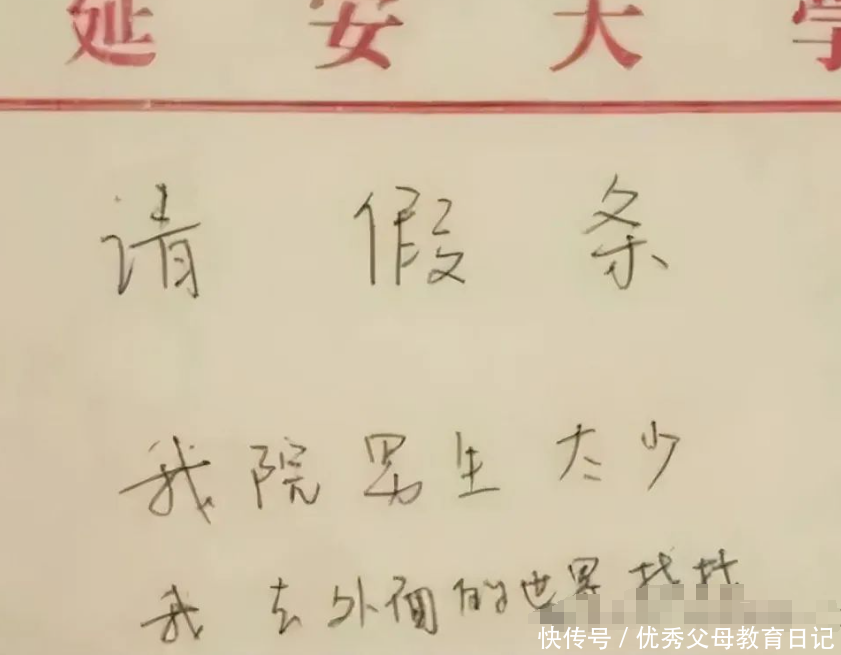 延安大学
请假条
我院男生太少
我去外面的世界找找
快传号/优秀父母教育日记